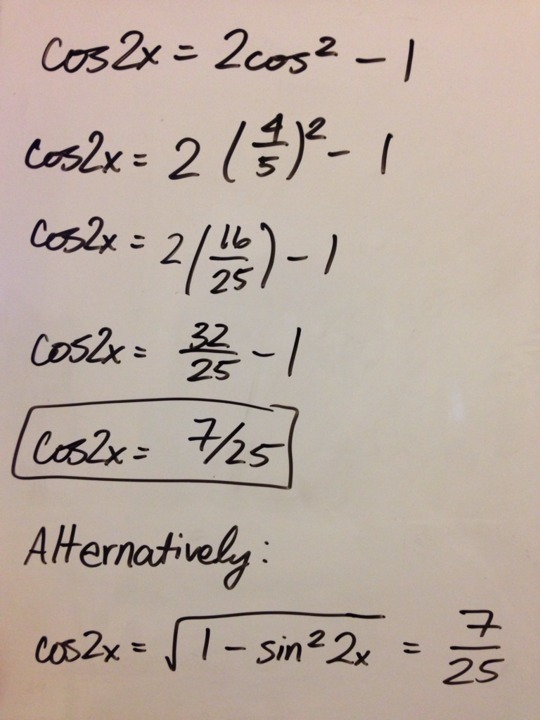 cos2x = 2cos² - 1
cos2x = 2 (4/5)² - 1
cos2x = 2(16/25) - 1
cos2x = 32/25 - 1
cos2x = 7/25
Alternatively:
cos2x = √(1 - sin² 2x) = 7/25